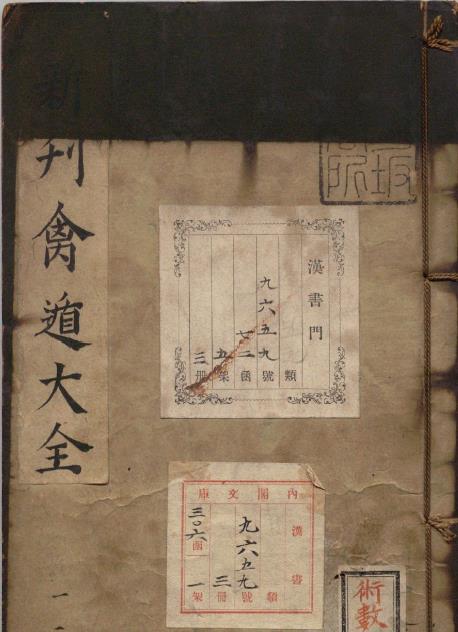 新刊禽遁大全
漢書門
類
九六五九號
七二函
五架
三冊
內閣文庫
漢書
九六五九
類號
三冊
三〇六函
一架
術數